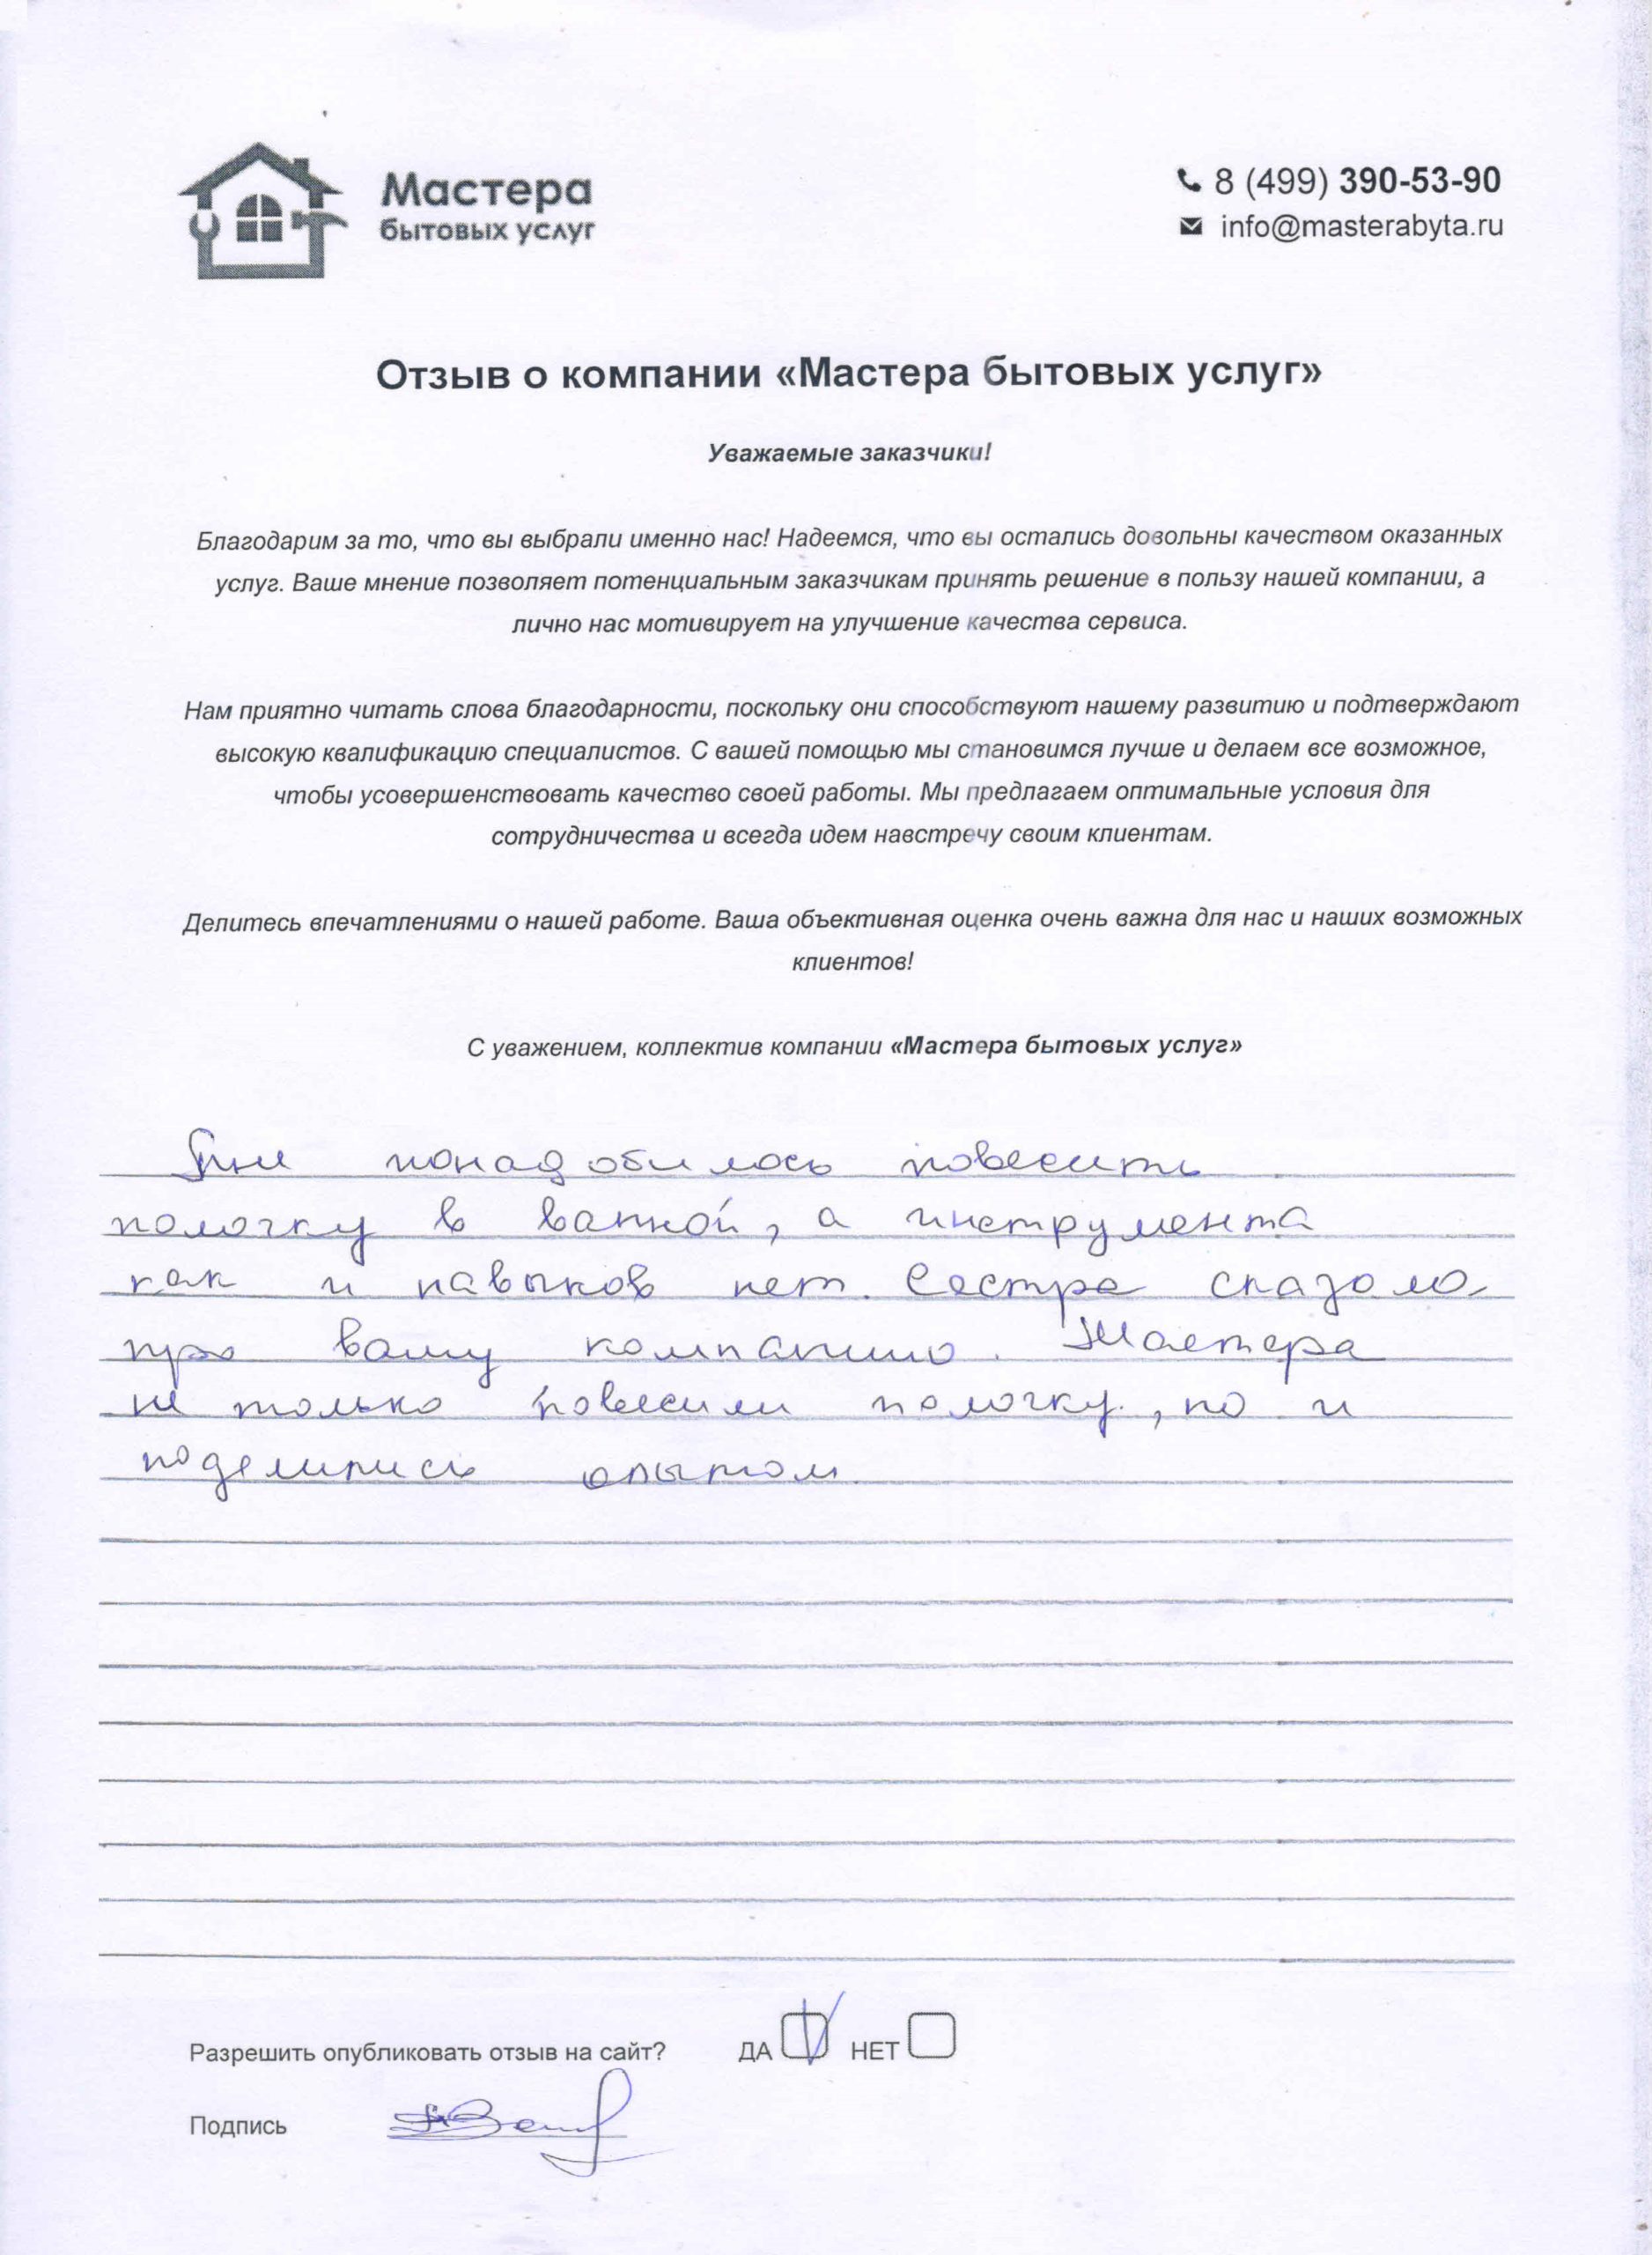 Мастера
бытовых услуг
8 (499) 390-53-90
info@masterabyta.ru
Отзыв о компании «Мастера бытовых услуг»
Уважаемые заказчики!
Благодарим за то, что вы выбрали именно нас! Надеемся, что вы остались довольны качеством оказанных
услуг. Ваше мнение позволяет потенциальным заказчикам принять решение в пользу нашей компании, а
лично нас мотивирует на улучшение качества сервиса.
Нам приятно читать слова благодарности, поскольку они способствуют нашему развитию и подтверждают
высокую квалификацию специалистов. С вашей помощью мы становимся лучше и делаем все возможное,
чтобы усовершенствовать качество своей работы. Мы предлагаем оптимальные условия для
сотрудничества и всегда идем навстречу своим клиентам.
Делитесь впечатлениями о нашей работе. Ваша объективная оценка очень важна для нас и наших возможных
клиентов!
С уважением, коллектив компании «Мастера бытовых услуг»
Мне понадобилось повесить
полочку в ванной, а инструмента
как и навыков нет. Сестра сказала
про вашу компанию. Мастера
не только повесили полочку, но и
поделились опытом
Разрешить опубликовать отзыв на сайт? ДА НЕТ
Подпись